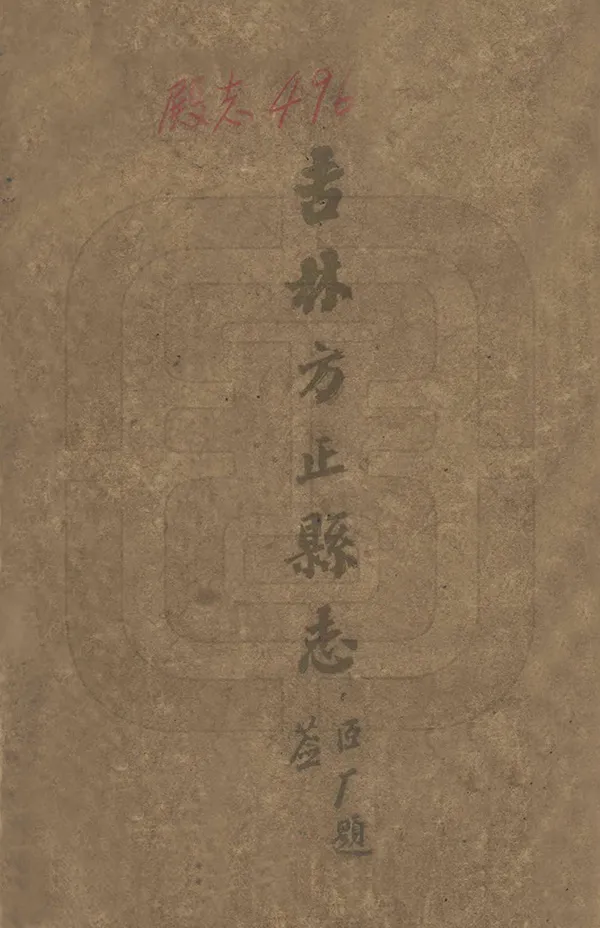 殿志496
吉林方正縣志
匡厂題
簽